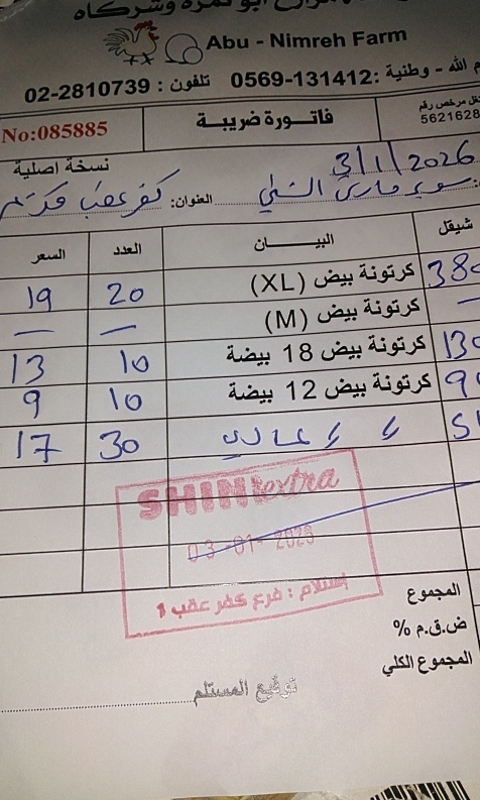 وشركاه
Abu - Nimreh Farm
م الله - وطنية :0569-131412 تلفون : 02-2810739
مرخص رقم
5621628
فاتورة ضريبة
No:085885
نسخة اصلية
3/1/2026
سوبر ماركت الشلي العنوان: كفر عقب
شيقل البيـــــان العدد السعر
380 كرتونة بيض (XL) 20 19
— كرتونة بيض (M) — —
130 كرتونة بيض 18 بيضة 10 13
90 كرتونة بيض 12 بيضة 10 9
30 17
SHINI extra
03-01-2026
إستلام : فرع كفر عقب 1
المجموع
ض.ق.م %
المجموع الكلي
توقيع المستلم